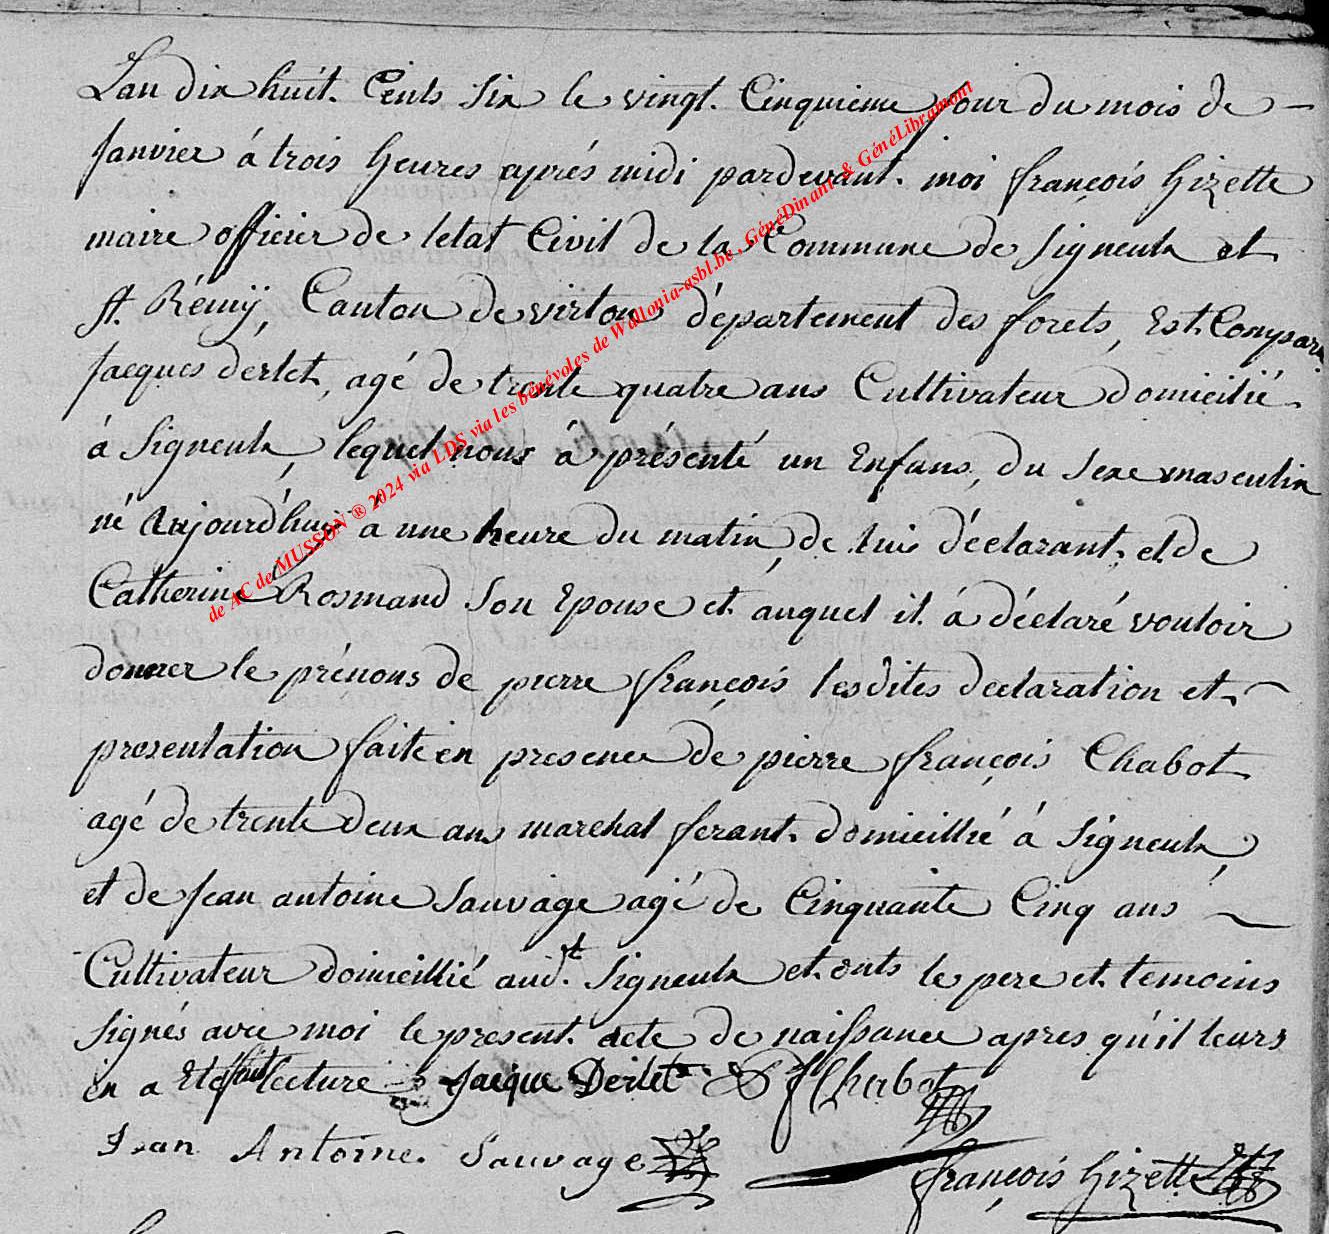 Lan dix huit. Cents six le vingt. Cinquieme jour du mois de –
Janvier á trois heures aprés midi pardevant. moi françois Gizette
maire officier de letat Civil de la Commune de Signeulx et
St. Rémÿ, Canton de virton département des forets, Est. Comparu
Jacques dérlet, agé de trente quatre ans Cultivateur domicilié
á Signeulx, lequel nous á présenté un Enfans, du Sexe masculin
né Aujourd'huÿ á une heure du matin, de lui déclarant, et de
Catherine Rosmand Son Epouse et auquel il á déclaré vouloir
donner le prénoms de pierre françois lesdites declaration et
presentation faite en presence de pierre françois Chabot
agé de trente deux ans marchal ferant. domicillié á Signeulx,
et de Jean antoine Sauvage agé de Cinquante Cinq ans
Cultivateur domicillié aud.t Signeulx et onts le pere et temoins
Signés avec moi le present. acte de naissance apres qu'il leurs
en a Eté fait lecture Jacque Derlet P f Chabot
Jean Antoine Sauvage
françois Gizette
de AC de MUSSON ® 2024 via LDS via les bénévoles de Wallonia-asbl.be, GénéDinant & GénéLibramont